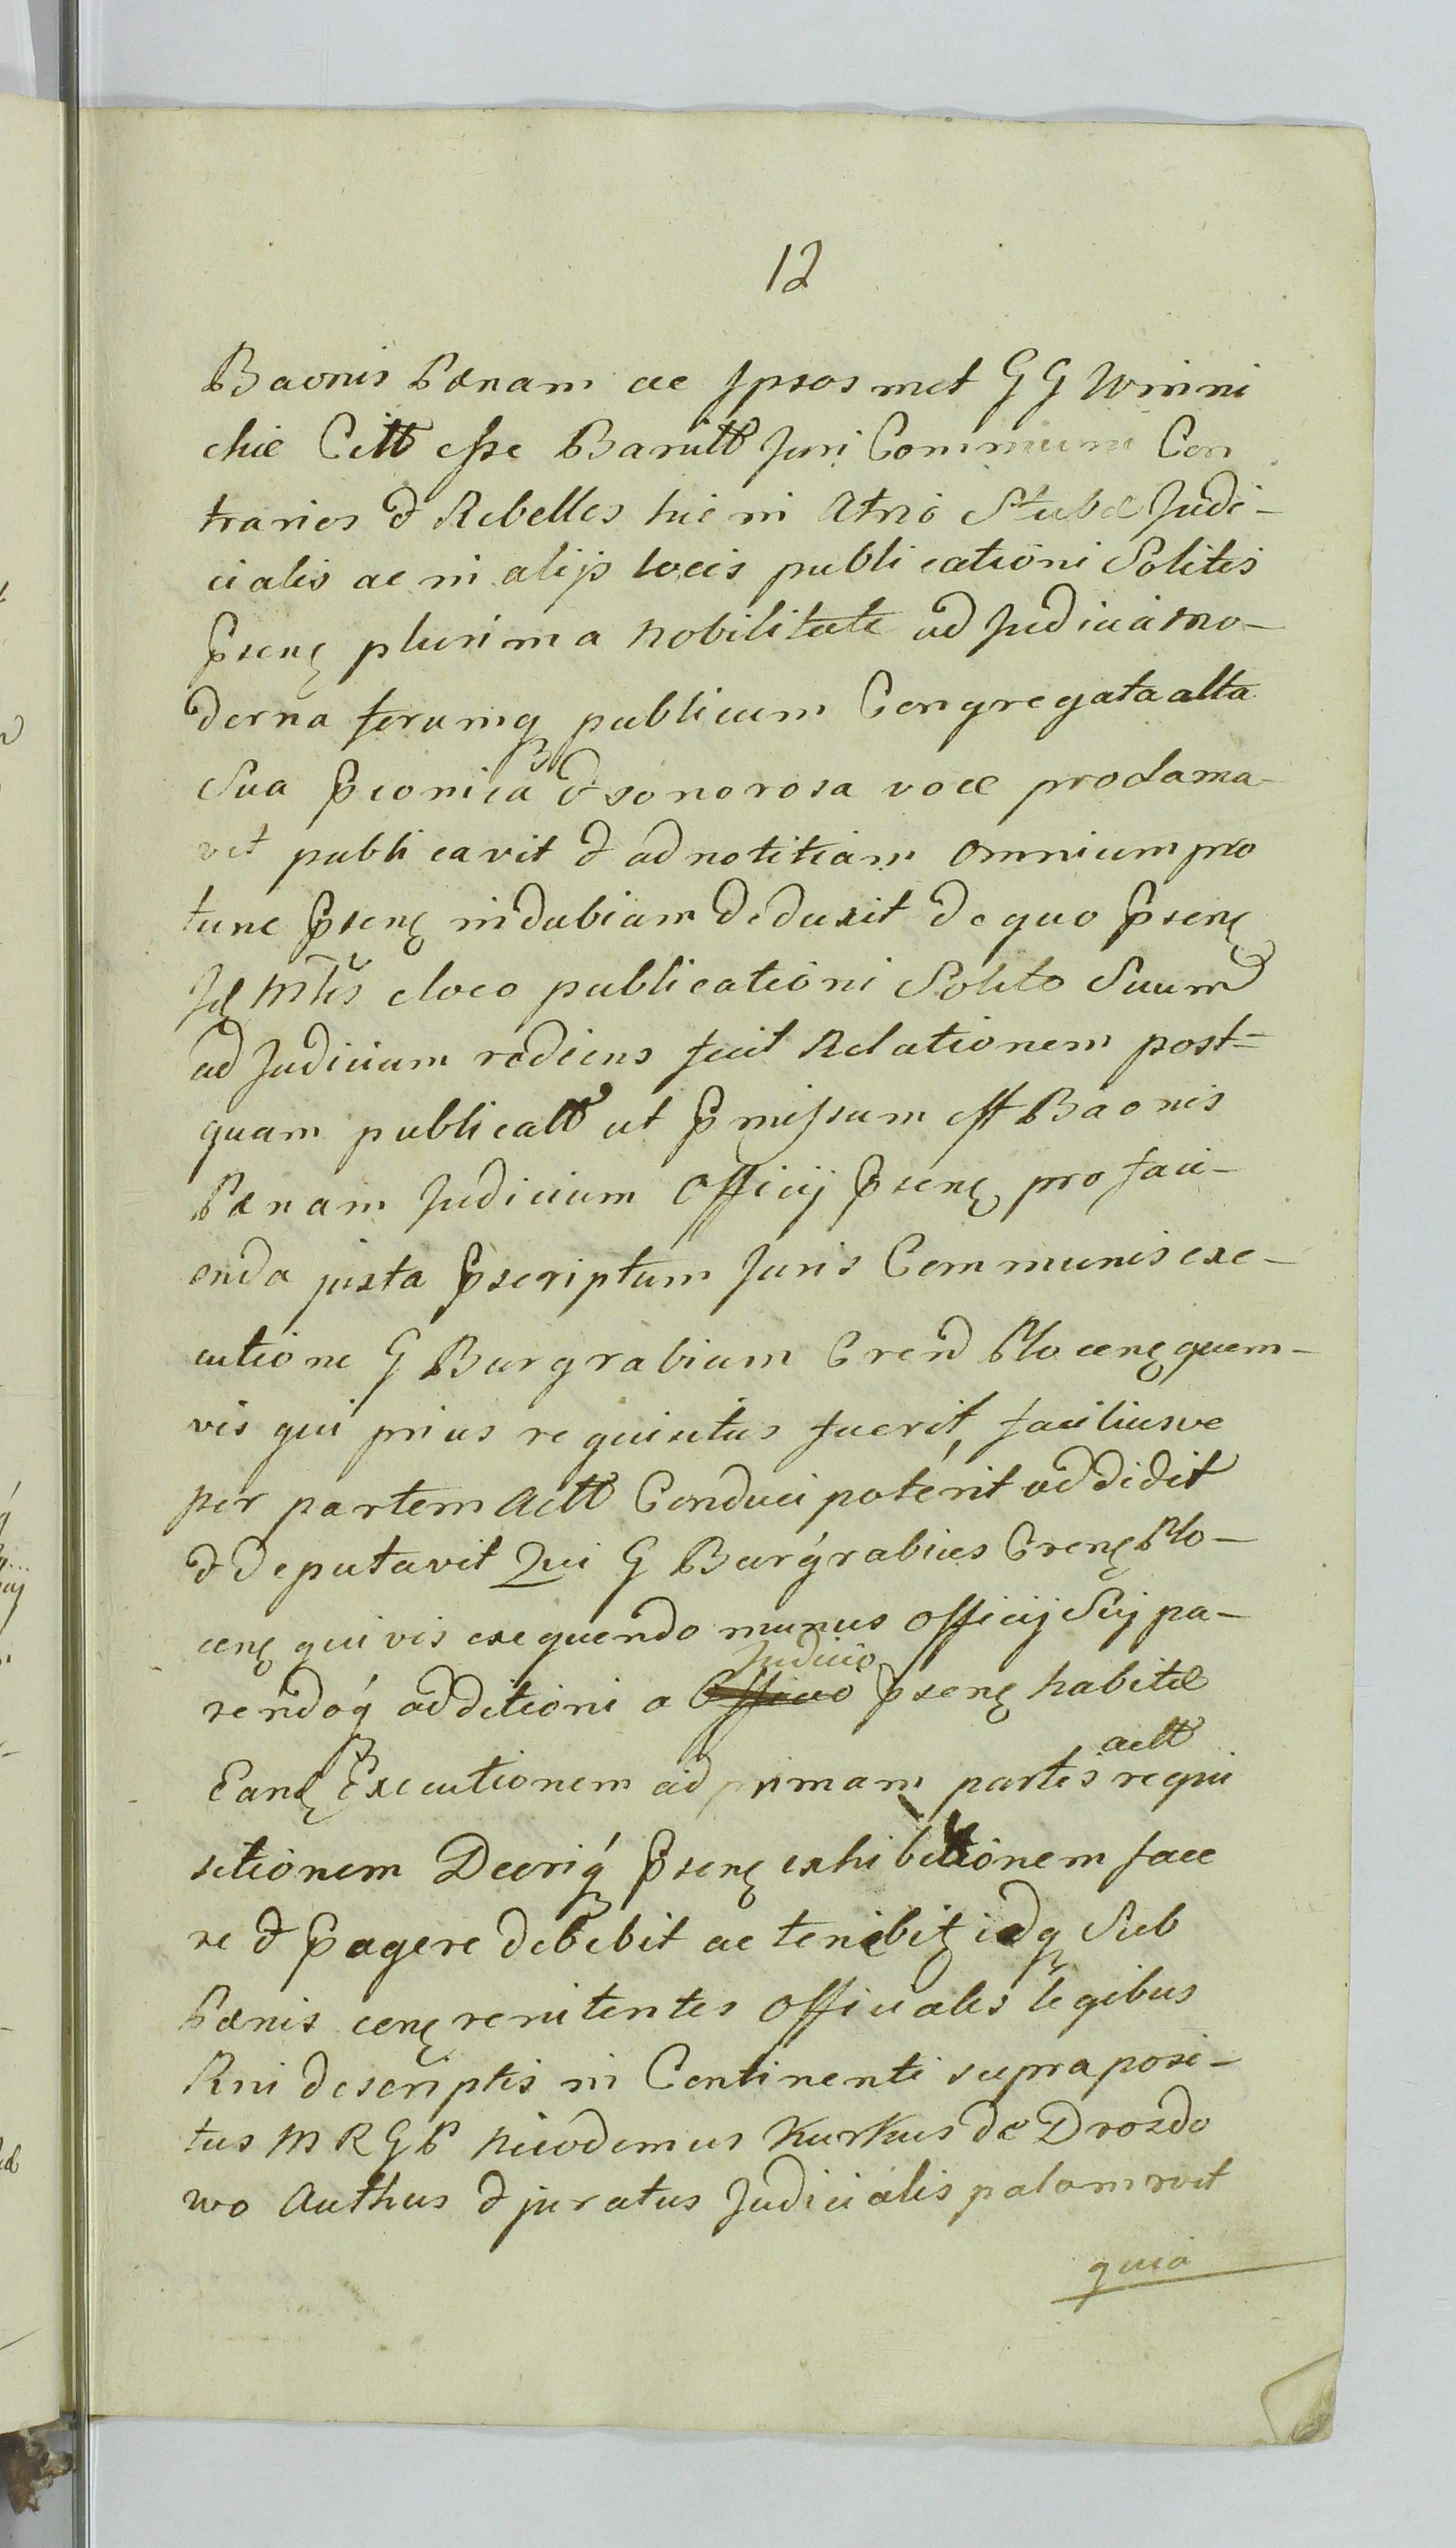 12
Baonis Pænam ac Ipsosmet GG Winni
ckie Citt esse Bannitt Juri Communi Con
trarios & Rebelles hic in Atrio Stubæ Judi-
cialis ac in alijs locis publicationi Solitis
Pseng plurima Nobilitate ad Judicia mo-
derna forumq publicum Congregata alta
Sua Pconica & sonorosa voce proclama-
vit publicavit & ad notitiam omnium pro
tunc Pseng indubiam deduxit de quo Pseng
Id Mtis e loco publicationi Solito Suum
ad Judicium rediens fecit Relationem post-
quam publicatt ut Pmissum est Baonis
Pænam Judicium Officij Pseng pro faci-
enda juxta Pscriptum Juris Communis exe-
cutione G Burgrabium Crend Ploceng quem-
vis qui prius requisitus fuerit, faciliusve
per partem Actt Conduci poterit addidit
& Deputavit Qui G Burgrabius Creng Plo-
ceng quivis exequendo munus Officij Sui pa-
rendoq additioni a Judicio Officio Pseng habitæ
Eand Executionem ad primam partis actt requi
sitionem Decriq Pseng exhibitionem face
re & Pagere debebit ac tenebitg idq Sub
Pænis ceng renitentes Officiales legibus
Rni descriptis in Continenti supra posi-
tus M R G P Nicodemus Kurkus de Drozdo
wo Authus & juratus Judicialis palam rvit
quia